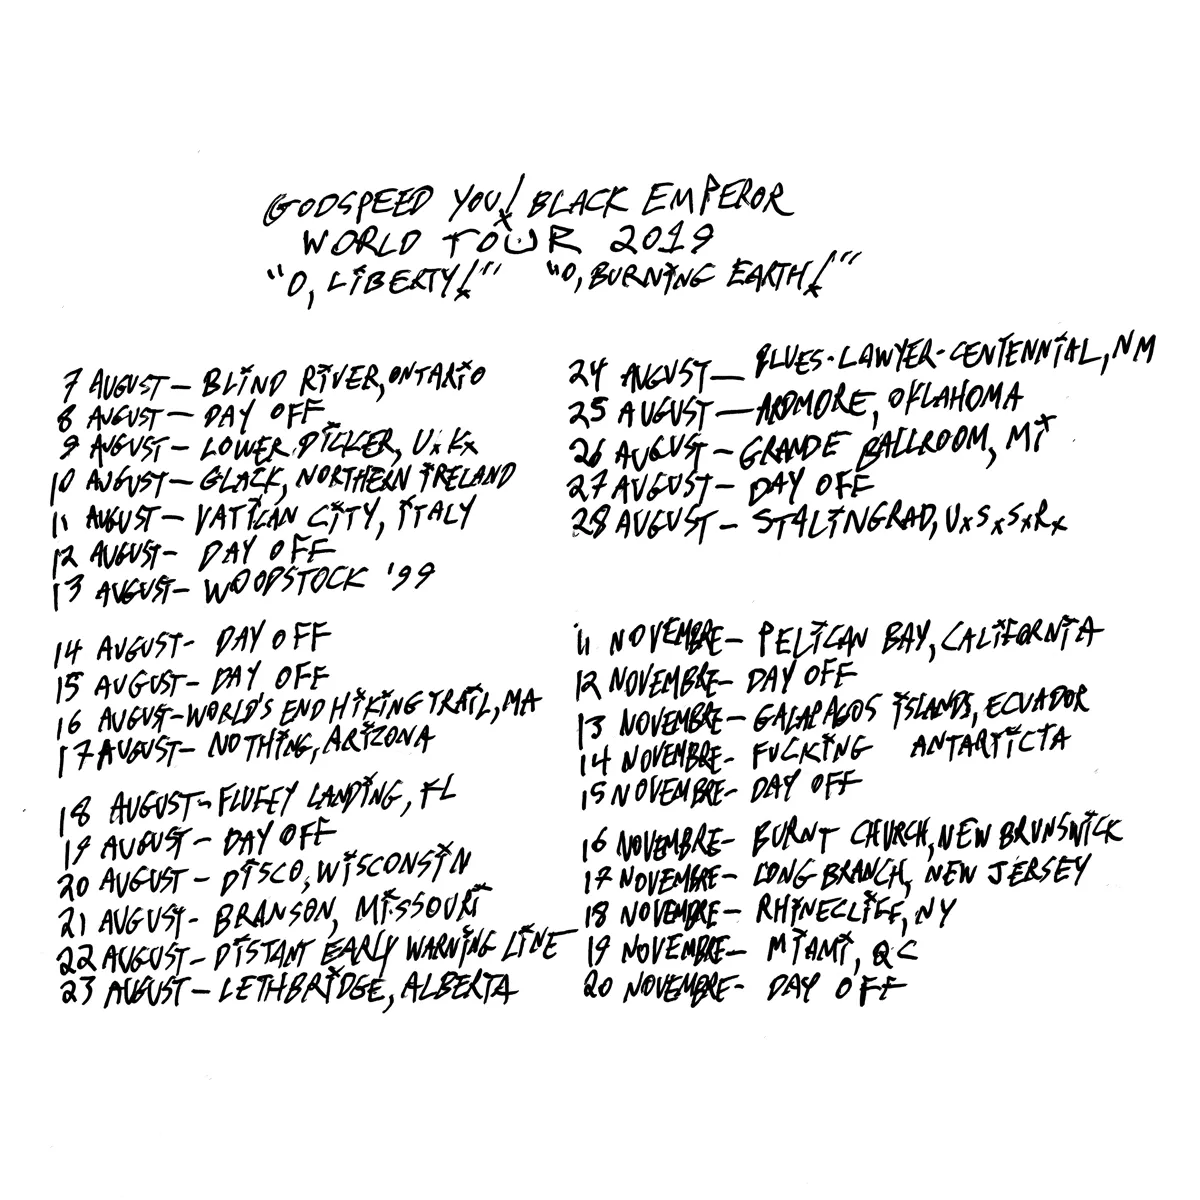 GODSPEED YOU! BLACK EMPEROR
WORLD TOUR 2019
"O, LIBERTY!" "O, BURNING EARTH!"
7 AUGUST — BLIND RIVER, ONTARIO
8 AUGUST — DAY OFF
9 AUGUST — LOWER DICKER, UxKx
10 AUGUST — GLACK, NORTHERN IRELAND
11 AUGUST — VATICAN CITY, ITALY
12 AUGUST — DAY OFF
13 AUGUST — WOODSTOCK '99
14 AUGUST — DAY OFF
15 AUGUST — DAY OFF
16 AUGUST — WORLD'S END HIKING TRAIL, MA
17 AUGUST — NOTHING, ARIZONA
18 AUGUST — FLUFFY LANDING, FL
19 AUGUST — DAY OFF
20 AUGUST — DISCO, WISCONSIN
21 AUGUST — BRANSON, MISSOURI
22 AUGUST — DISTANT EARLY WARNING LINE
23 AUGUST — LETHBRIDGE, ALBERTA
24 AUGUST — BLUES-LAWYER-CENTENNIAL, NM
25 AUGUST — ARDMORE, OKLAHOMA
26 AUGUST — GRANDE BALLROOM, MI
27 AUGUST — DAY OFF
28 AUGUST — STALINGRAD, UxSxSxRx
11 NOVEMBRE — PELICAN BAY, CALIFORNIA
12 NOVEMBRE — DAY OFF
13 NOVEMBRE — GALAPAGOS ISLANDS, ECUADOR
14 NOVEMBRE — FUCKING ANTARTICTA
15 NOVEMBRE — DAY OFF
16 NOVEMBRE — BURNT CHURCH, NEW BRUNSWICK
17 NOVEMBRE — LONG BRANCH, NEW JERSEY
18 NOVEMBRE — RHINECLIFF, NY
19 NOVEMBRE — MIAMI, QC
20 NOVEMBRE — DAY OFF